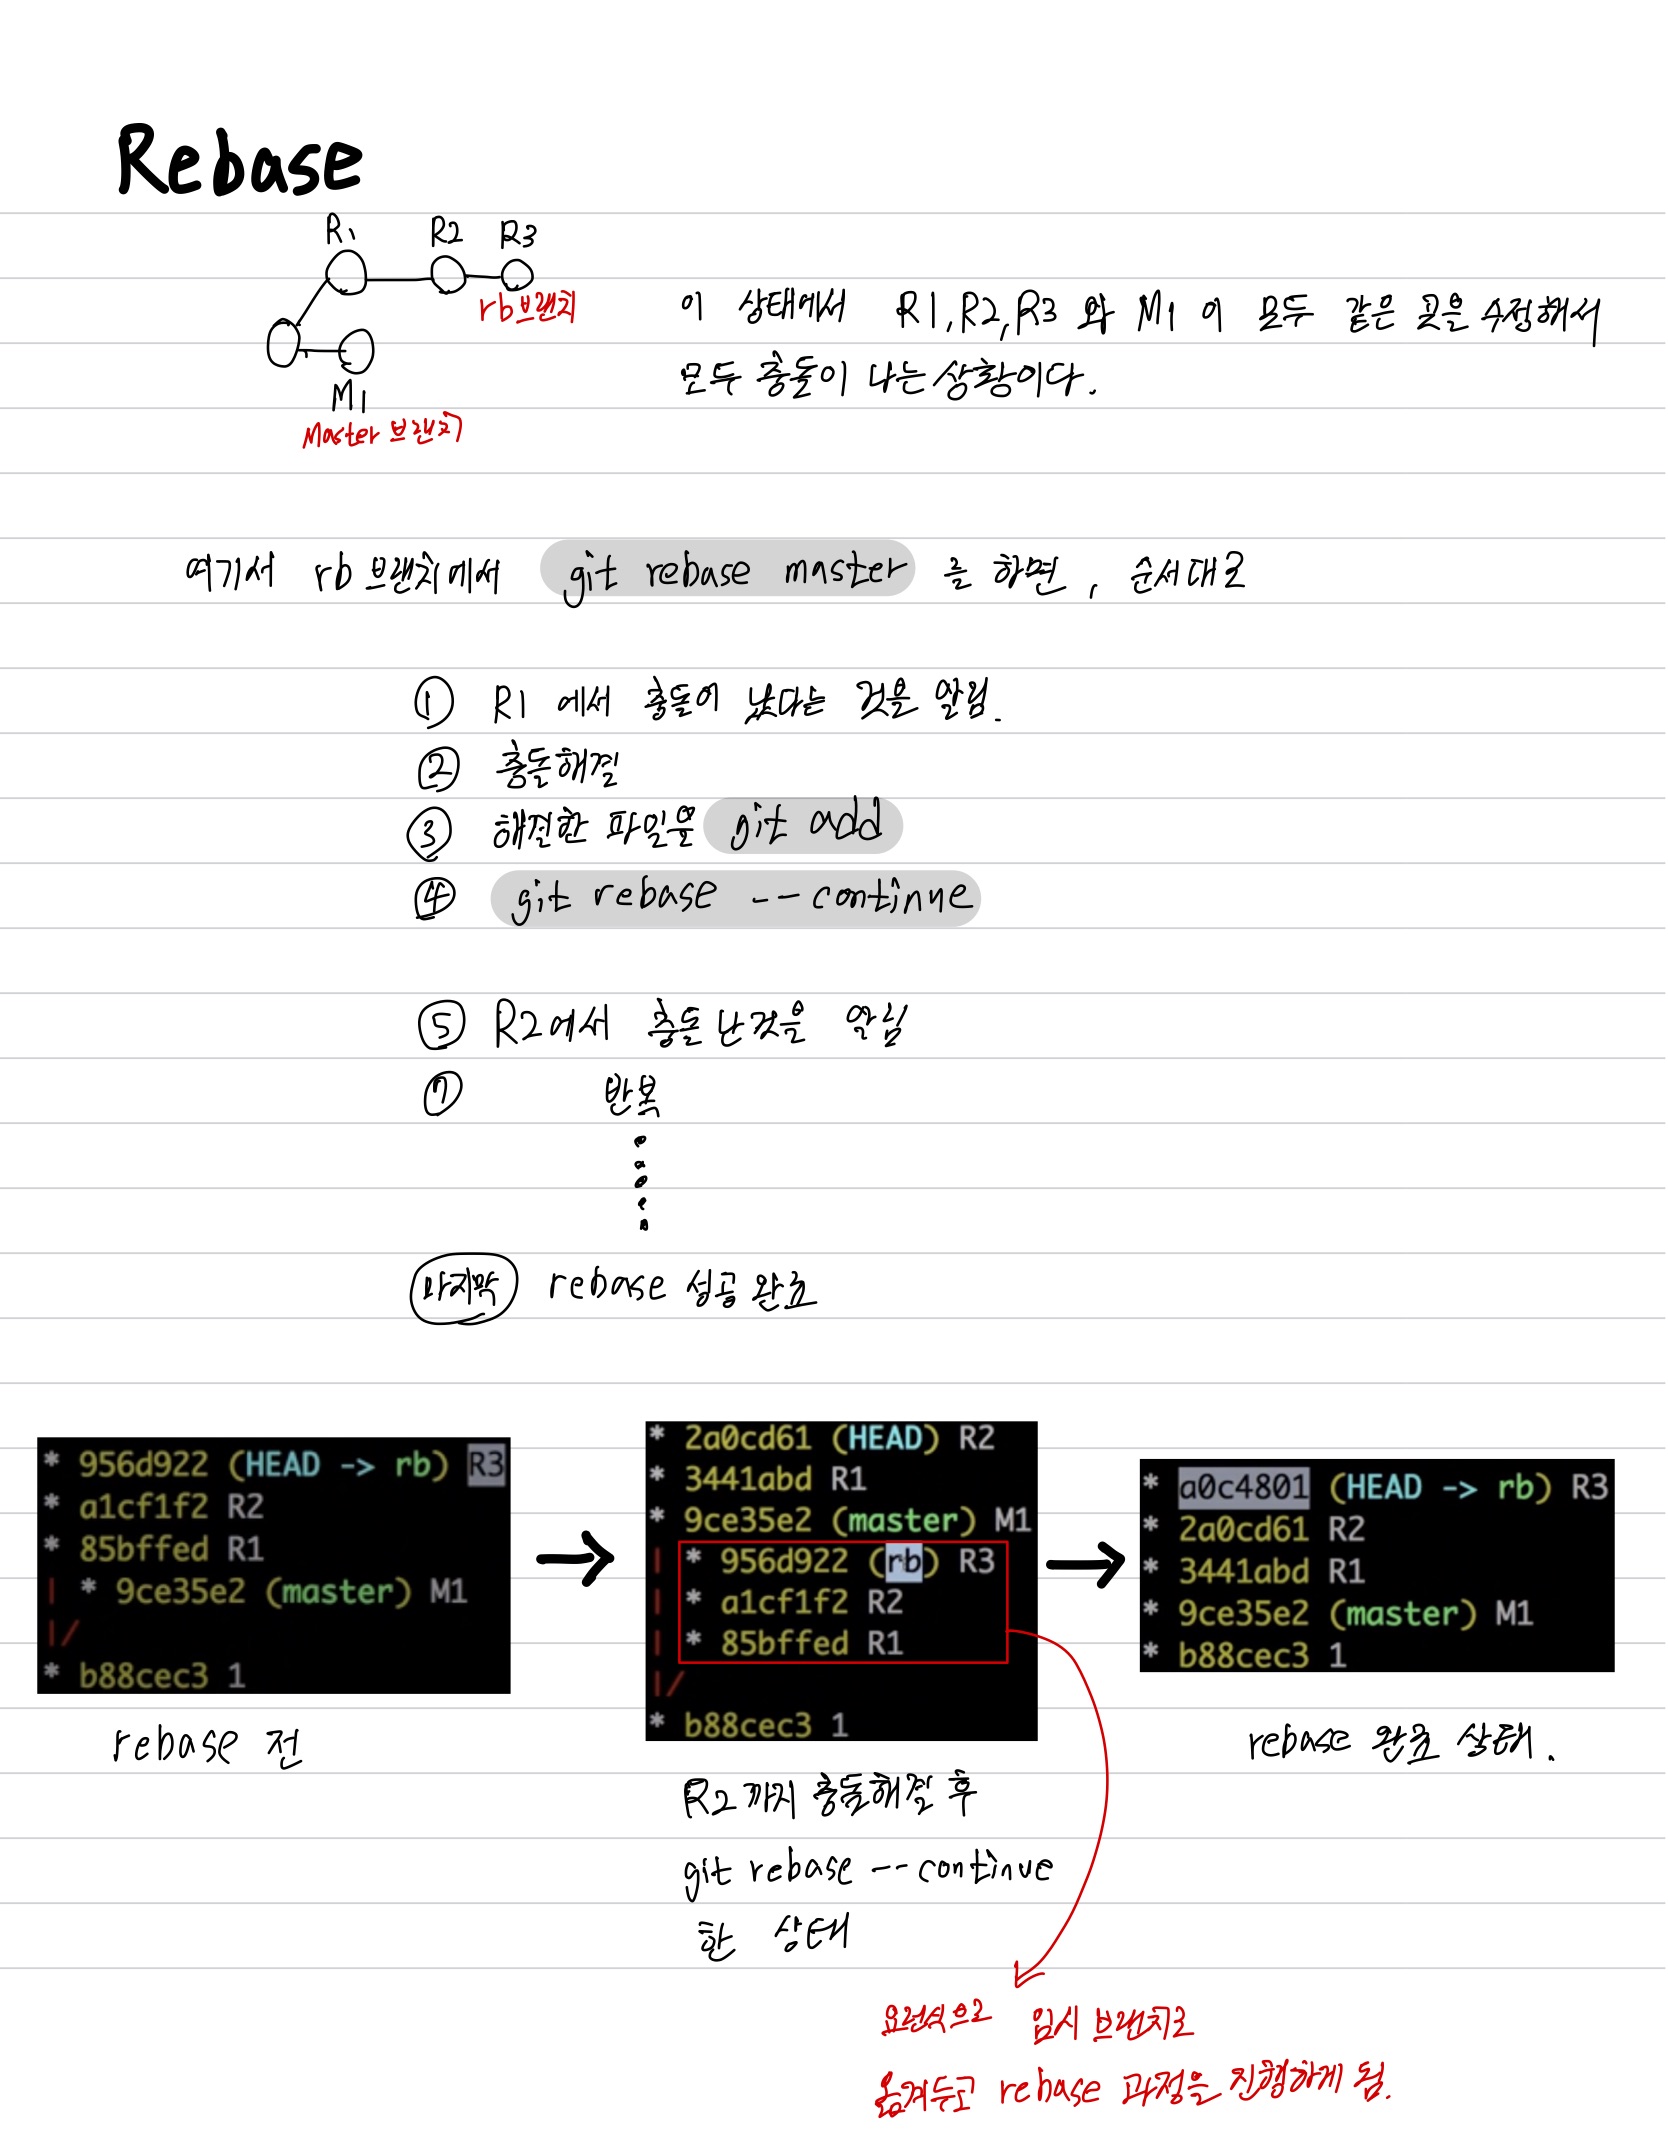 Rebase
R1 R2 R3
rb브랜치
M1
Master 브랜치
이 상태에서 R1,R2,R3 와 M1 이 모두 같은 곳을 수정해서
모두 충돌이 나는 상황이다.
여기서 rb 브랜치에서 git rebase master 를 하면, 순서대로
① R1 에서 충돌이 났다는 것을 알림.
② 충돌해결
③ 해결한 파일을 git add
④ git rebase --continue
⑤ R2에서 충돌난것을 알림
⑦ 반복
마지막 rebase 성공 완료
* 956d922 (HEAD -> rb) R3
* a1cf1f2 R2
* 85bffed R1
| * 9ce35e2 (master) M1
|/
* b88cec3 1
rebase 전
* 2a0cd61 (HEAD) R2
* 3441abd R1
* 9ce35e2 (master) M1
| * 956d922 (rb) R3
| * a1cf1f2 R2
| * 85bffed R1
|/
* b88cec3 1
R2까지 충돌해결 후
git rebase --continue
한 상태
* a0c4801 (HEAD -> rb) R3
* 2a0cd61 R2
* 3441abd R1
* 9ce35e2 (master) M1
* b88cec3 1
rebase 완료 상태.
요런식으로 임시 브랜치로
옮겨두고 rebase 과정을 진행하게 됨.